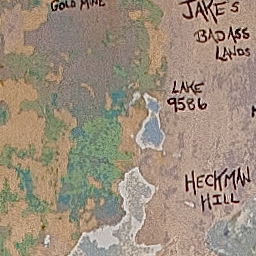 GOLD MINE
JAKES
BADASS
LANDS
LAKE
9586
HECKMAN
HILL